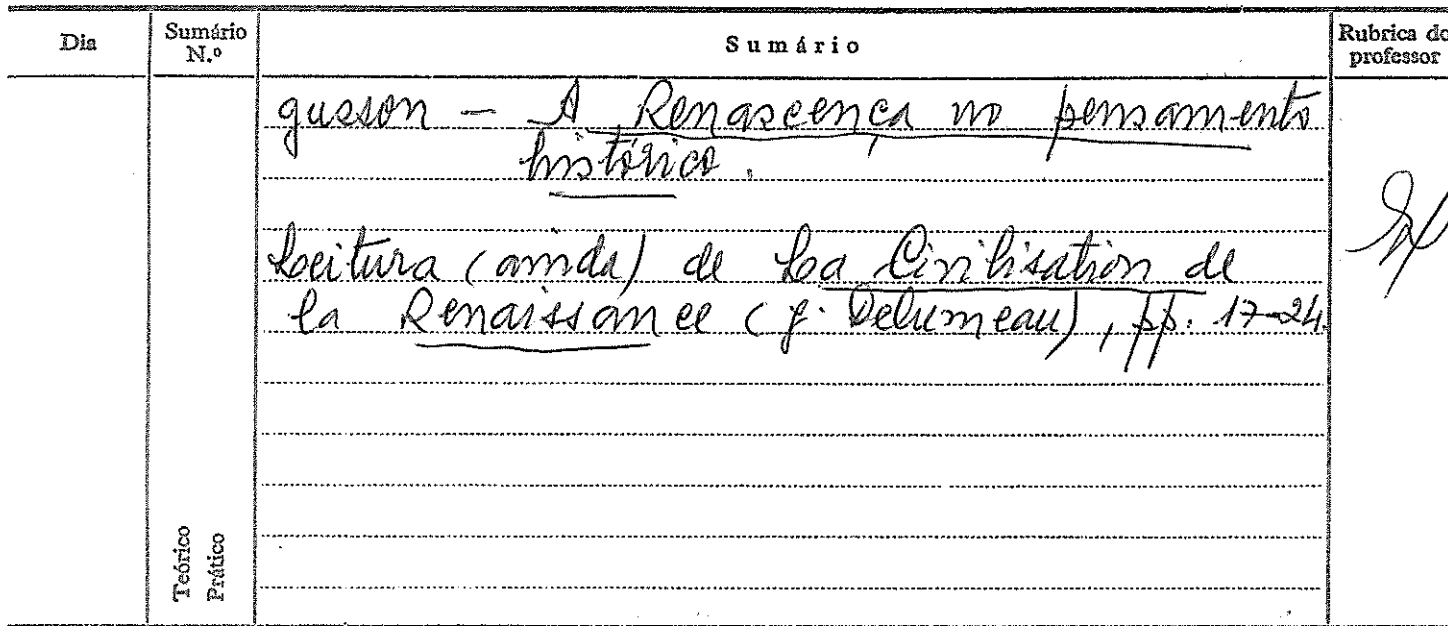 Dia
Sumário
N.º
Sumário
Rubrica do
professor
gusson - A Renascença no pensamento
histórico.
Leitura (ainda) de La Civilisation de
la Renaissance (J. Delumeau), pp. 17-24.
Teórico
Prático